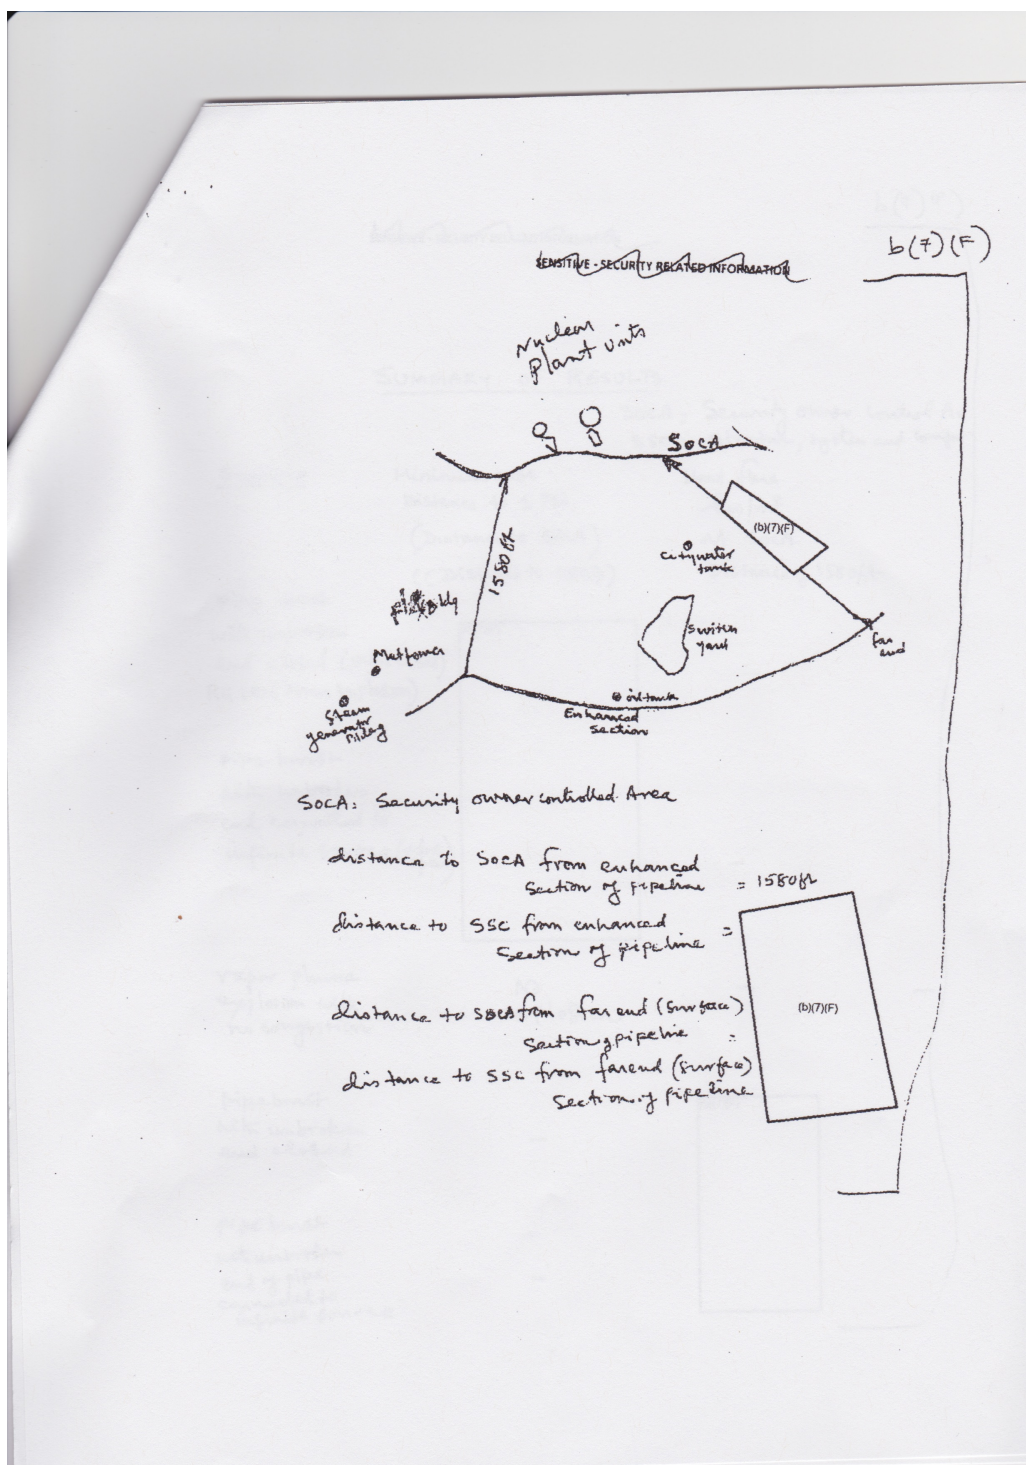 b(7)(F)
SENSITIVE - SECURITY RELATED INFORMATION
Nuclear
Plant units
SOCA
(b)(7)(F)
City water
tank
1580ft
Bldg
Met tower
Switch
yard
far
end
oil tank
Enhanced
section
Steam
generator
Bldg
SOCA: Security owner controlled Area
distance to SOCA from enhanced
section of pipeline = 1580ft
distance to SSC from enhanced =
section of pipeline
(b)(7)(F)
distance to SOCA from far end (surface)
section of pipeline =
distance to SSC from far end (surface)
section of pipeline
SUMMARY RESULTS